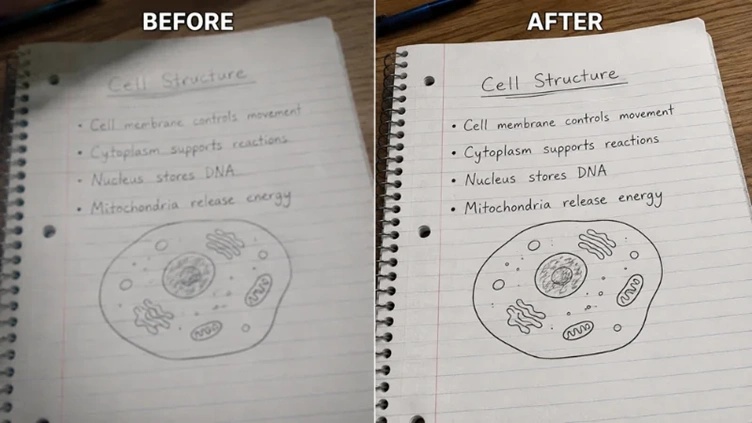 BEFORE
Cell Structure
• Cell membrane controls movement
• Cytoplasm supports reactions
• Nucleus stores DNA
• Mitochondria release energy
AFTER
Cell Structure
• Cell membrane controls movement
• Cytoplasm supports reactions
• Nucleus stores DNA
• Mitochondria release energy